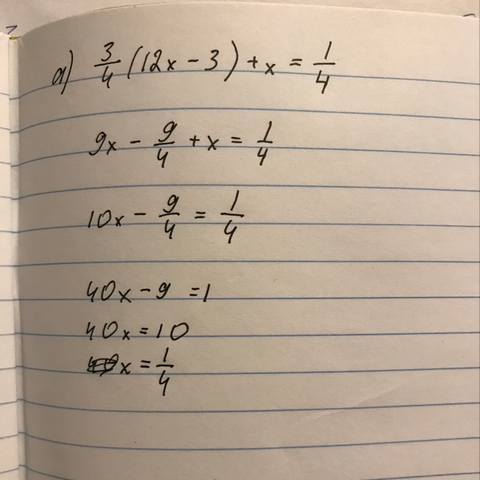 a) 3/4 (12x - 3) + x = 1/4
9x - 9/4 + x = 1/4
10x - 9/4 = 1/4
40x - 9 = 1
40x = 10
x = 1/4